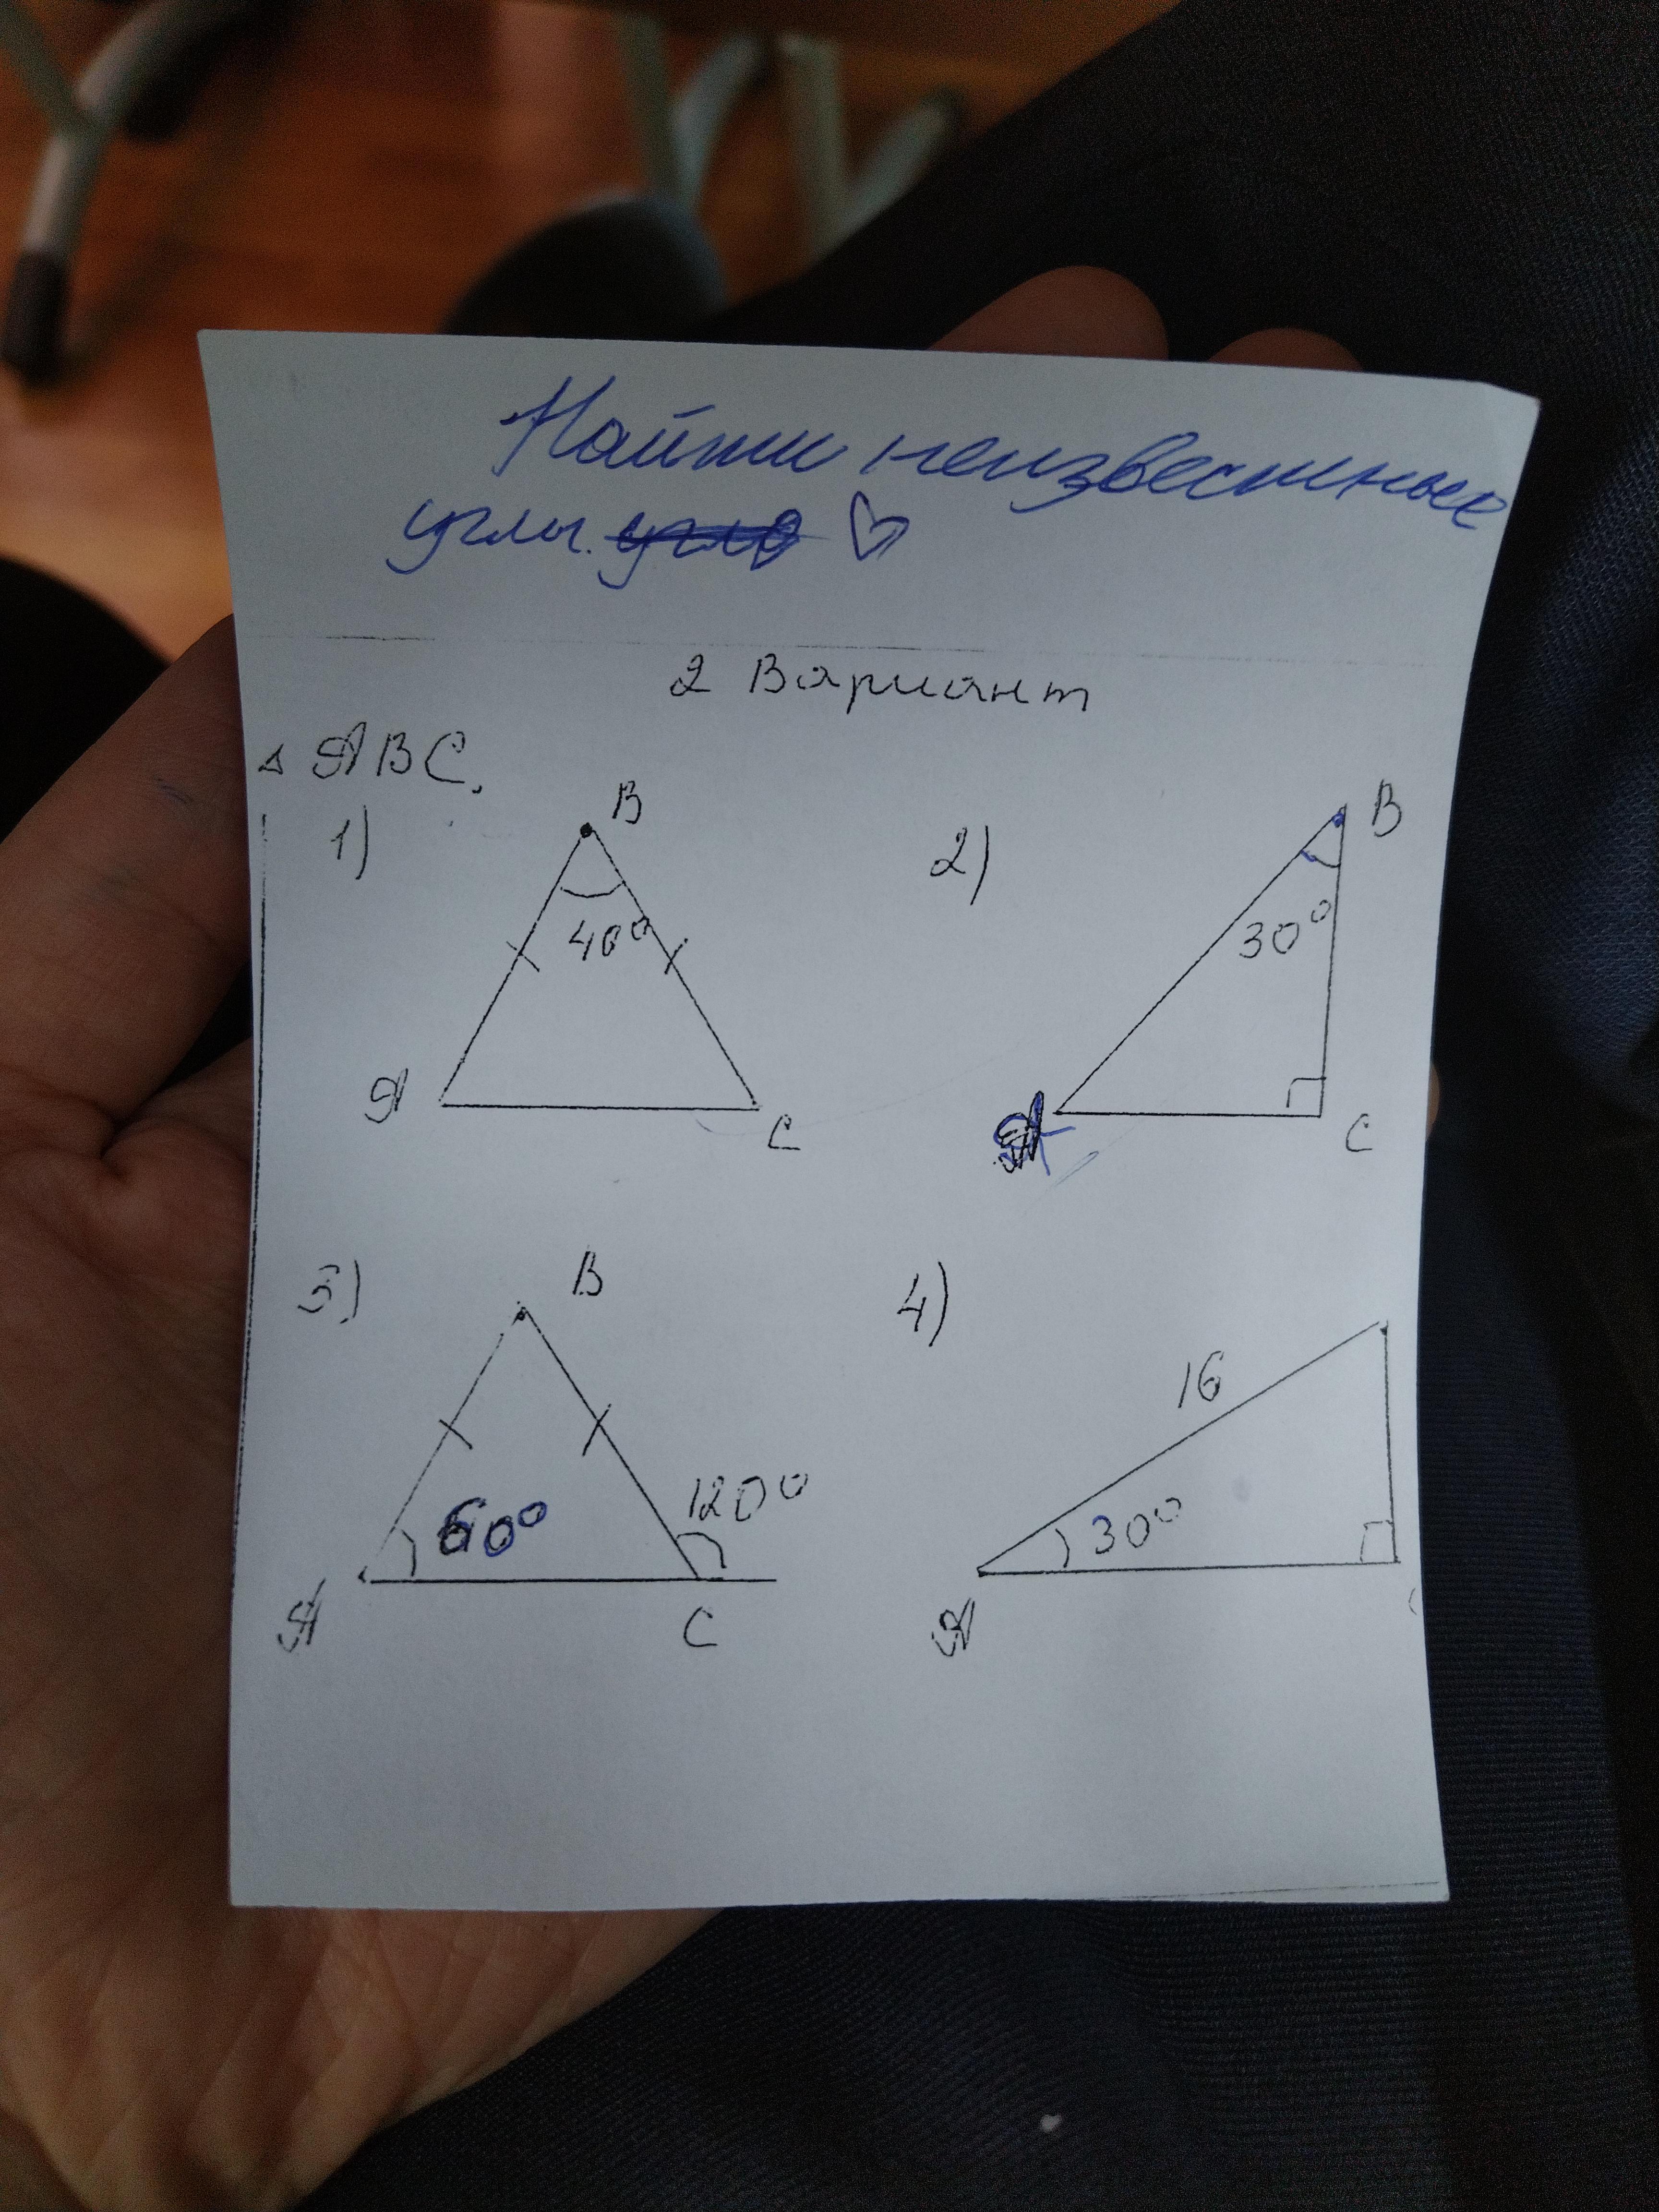 Найти неизвестные
углы. ♡
2 Вариант
△ ABC.
1)
B
40°
A
C
2)
B
30°
A
C
3)
B
60°
120°
A
C
4)
16
30°
A